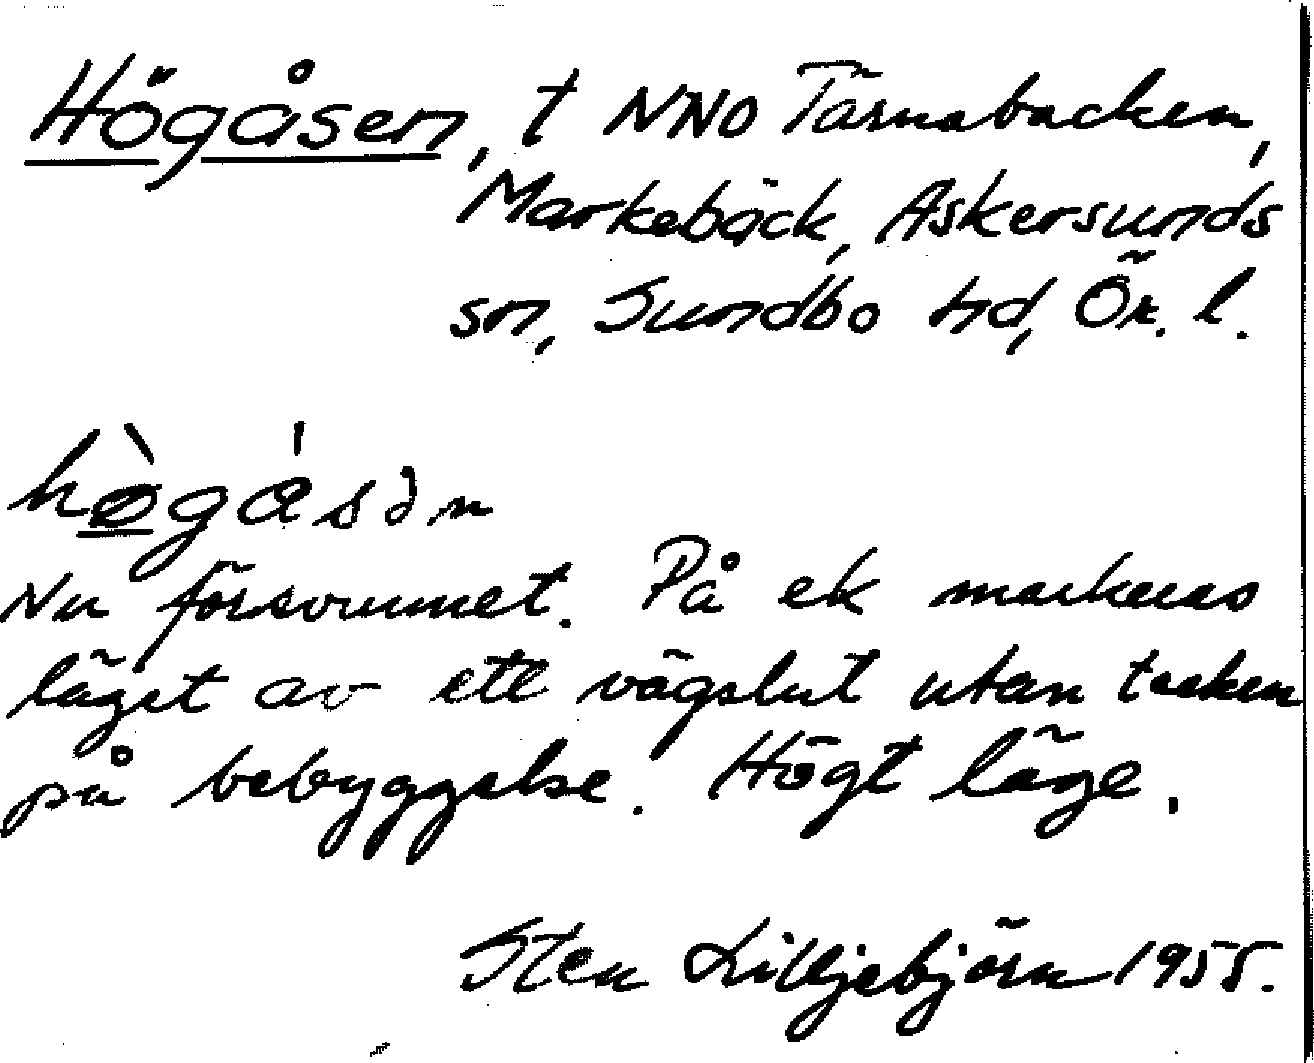 Högåsen, t NNO Tärnabacken,
Markebäck, Askersunds
sn, Sundbo hd, Ör. l.
hø̀gåsən
Nu försvunnet. På ek markeras
läget av ett vägslut utan tecken
på bebyggelse. Högt läge.
Sten Lilljebjörn 1955.